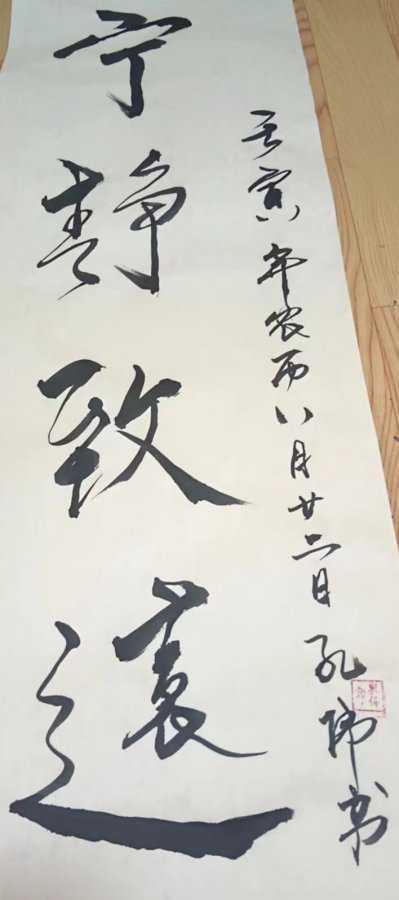 宁静致遠
壬寅年农历八月廿二日孔书